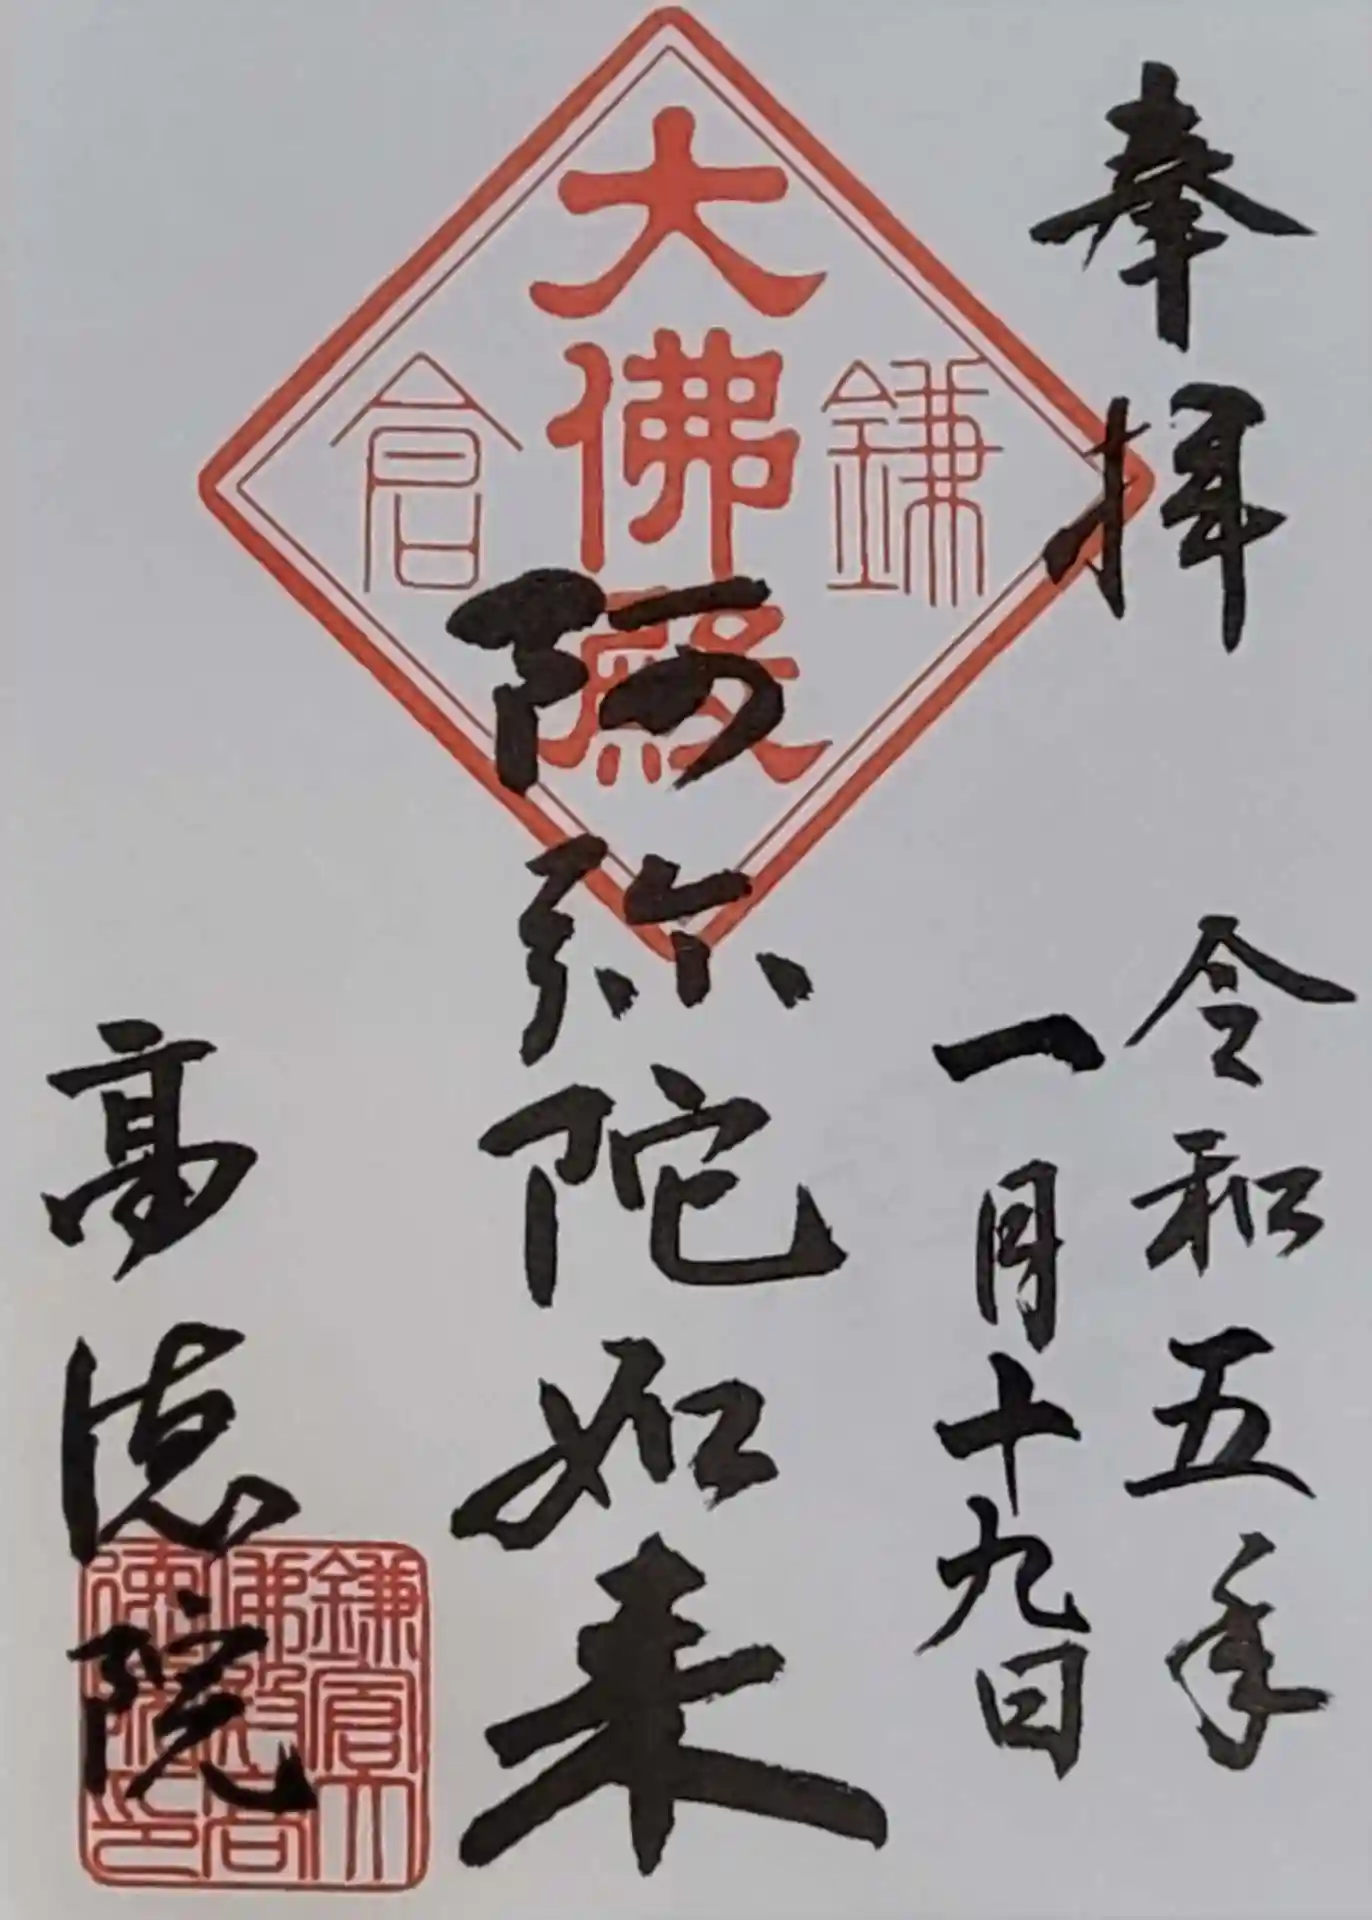 奉拝
令和五年
一月十九日
鎌倉
大佛殿
阿弥陀如来
高徳院
鎌倉大
佛殿高
徳院印